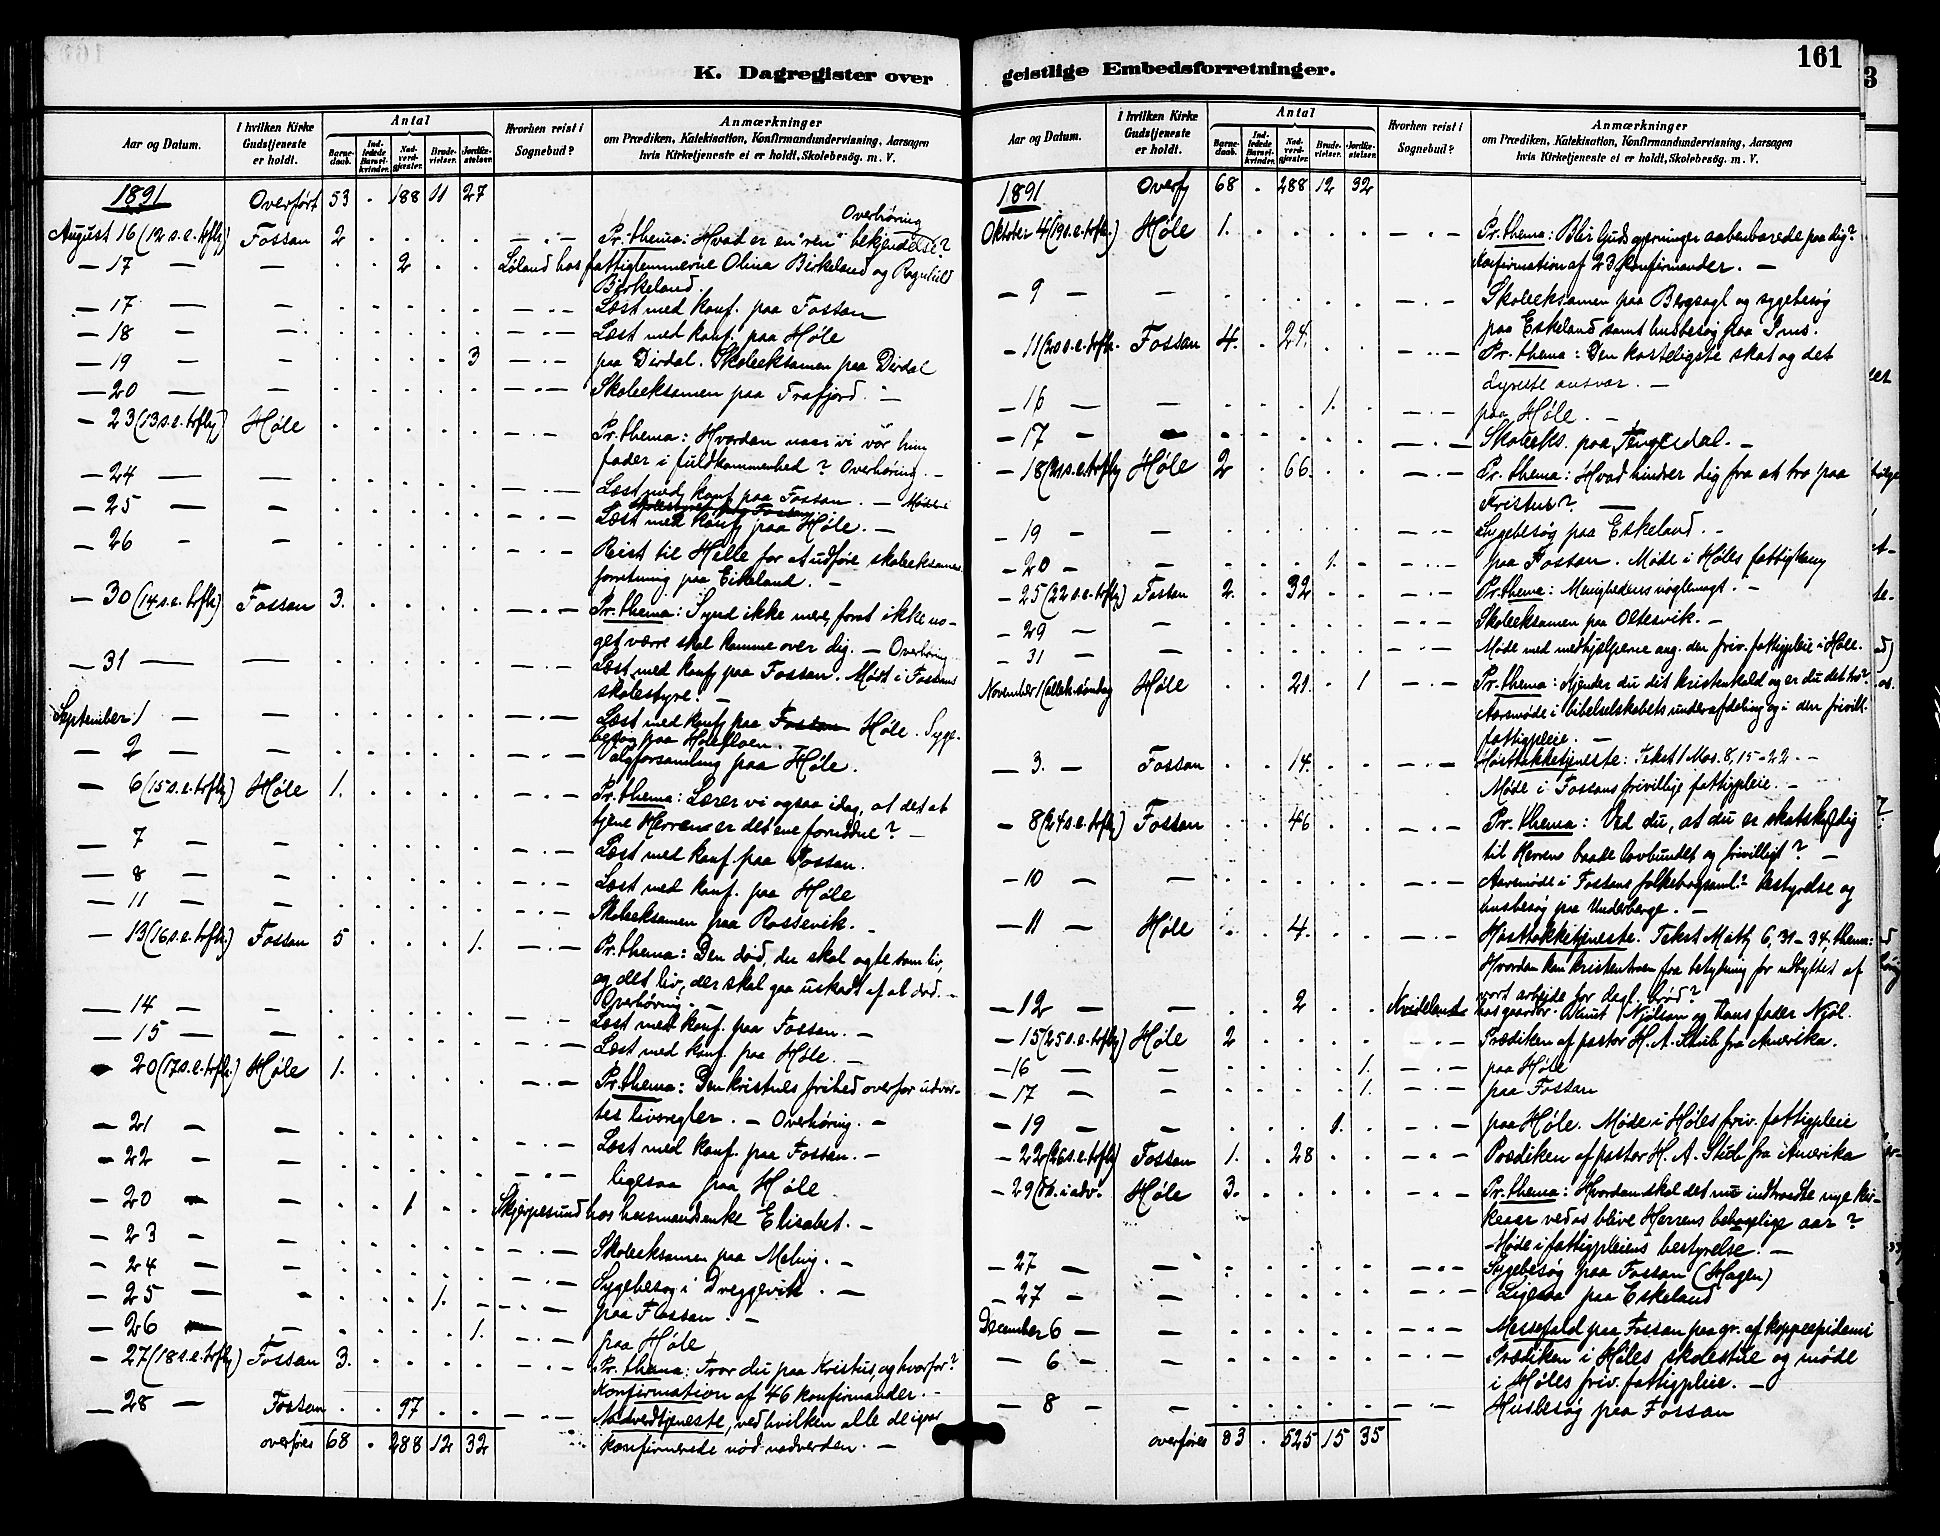 161
K. Dagregister over
Aar og Datum. I hvilken Kirke Gudstjeneste er holdt. Antal Barnedaab. Indledede Barselkvinder. Nadverdgjester. Brudevielser. Jordfæstelser. Hvorhen reist i Sognebud? Anmærkninger om Prædiken, Katekisation, Konfirmandundervisning, Aarsagen hvis Kirketjeneste ei er holdt, Skolebesög. m. V.
1891 Overført 53 . 188 11 27
Overhøring
August 16 (12 s.e. trflg) Fossan 2 . . . . — . — Pr. thema: Hvad er en "ren" bekjendelse?
— 17 — — . . 2 . . Løland hos fattiglemmerne Olina Birkeland og Ragnhild
Birkeland.
— 17 — — . . . . . — . — Læst med konf. paa Fossan
— 18 — — . . . . . — . — Læst med konf. paa Høle
— 19 — — . . . . 3 — . — paa Dirdal. Skoleeksamen paa Dirdal
— 20 — — . . . . . — . — Skoleeksamen paa Frafjord. —
— 23 (13 s.e. trflg) Høle . . . . . — . — Pr. thema: Hvordan naar vi vor him
fader i fuldkommenhed? Overhøring. —
— 24 — — . . . . . — . — Læst med konf paa Fossan. — Møde i
— 25 — — . . . . . — . — Læst med konf paa Høle. —
— 26 — — . . . . . — . — Reist til Helle for at udføre skoleeksamens
forretning paa Eikeland. —
— 30 (14 s.e. trflg) Fossan 3. . . . . — . — Pr. thema: Synd ikke mere, forat ikke no-
get værre skal komme over dig. — Overhøring
— 31 — — . . . . . — . — Læst med konf paa Fossan. Mødt i Fossans
skolestyre. —
September 1 — — . . . . . — . — Læst med konf paa Fossan Høle. Syge-
besøg paa Holefloen. —
— 2 — — . . . . . — . — Valgforsamling paa Høle.
— 6 (15 s.e. trflg) Høle 1. . . . . — . — Pr. thema: Lærer vi ogsaa idag, at det at
tjene Herren er det ene fornødne? —
— 7 — — . . . . . — . — Læst med konf. paa Fossan.
— 8 — — . . . . . — . — Læst med konf. paa Høle
— 11 — — . . . . . — . — Skoleeksamen paa Rossavik. —
— 13 (16 s.e. trflg.) Fossan 5 . . . 1. — . — Pr. thema: Den død, der skal agtes som liv,
og det liv, der skal gaa uskadt af al død. —
Overhøring. —
— 14 — — . . . . . — . — Læst med konf. paa Fossan. —
— 15 — — . . . . . — . — Læst med konf. paa Høle. —
— 20 (17 s.e. trflg.) Høle 1. . . . . — . — Pr. thema: Den kristnes frihed overfor udvor-
tes livsregler. — Overhøring. —
— 21 — — . . . . . — . — Læst med konf. paa Fossan. —
— 22 — — . . . . . — . — ligesaa paa Høle
— 20 — — . . 1 . . Skjørpesund hos husmandsenke Elisabet. —
— 23 — — . . . . . — . — Skoleeksamen paa Meling. —
— 24 — — . . . . . — . — Sygebesøg i Dreggevik. —
— 25 — — . . . 1. — — . — paa Fossan. —
— 26 — — . . . . 1. — . — paa Høle
— 27 (18 s.e. trflg) Fossan 3. . . . . — . — Pr. thema: Tror du paa Kristus, og hvorfor?
Konfirmation af 46 konfirmander. —
— 28 — Fossan . . 97 . . — . — Nadverdtjeneste, ved hvilken alle de igaar
konfirmerede nød nadverden. —
overføres 68 . 288 12 32
geistlige Embedsforretninger.
Aar og Datum. I hvilken Kirke Gudstjeneste er holdt. Antal Barnedaab. Indledede Barselkvinder. Nadverdgjester. Brudevielser. Jordfæstelser. Hvorhen reist i Sognebud? Anmærkninger om Prædiken, Katekisation, Konfirmandundervisning, Aarsagen hvis Kirketjeneste ei er holdt, Skolebesög. m. V.
1891 Overf 68 . 288 12 32
Oktober 4 (19 s.e. trflg.) Høle 1. . . . . — . — Pr. thema: Blir Guds gjerninger aabenbarede paa dig?
Konfirmation af 23 konfirmander. —
— 9 — — . . . . . — . — Skoleeksamen paa Bergsagl og sygebesøg
paa Eskeland samt husbesøg paa Ims.
— 11 (20 s.e. trflg. Fossan 4. . 24. . . — . — Pr. thema: Den kosteligste skat og det
dyreste ansvar. —
— 16 — — . . . 1. . — . — paa Høle. —
— 17 — — . . . . . — . — Skoleeks. paa Tengesdal. —
— 18 (21 s.e. trflg Høle 2 . 66. . . — . — Pr. thema: Hvad hindrer dig fra at tro paa
Kristus? —
— 19 — — . . . . . — . — Sygebesøg paa Eskeland. —
— 20 — — . . . 1. . — . — paa Fossan. Møde i Høles fattigkom
— 25 (22 s.e. trflg) Fossan 2. . 32 . . — . — Pr. thema: Menighedens nøglemagt. —
— 29 — — . . . . . — . — Skoleeksamen paa Oltesvik. —
— 31 — — . . . . . — . — Møde med medhjælperne ang. den friv. fattigpleie i Høle.
November 1 (alleh. søndag Høle . . 21. . 1 — . — Pr. thema: Kjender du dit kristenkald og er du det tro?
Aarsmøde i bibelselskabets underafdeling og i den frivill.
fattigpleie. —
— 3. — Fossan . . 14. . . — . — Høsttakketjeneste: Tekst 1 Mos. 8, 15—22. —
Møde i Fossans frivillige fattigpleie. —
— 8 (24 s.e. trflg) Fossan . . 46 . . — . — Pr. thema: Ved du, at du er skatskyldig
til Herren baade lovbundet og frivilligt? —
— 10 — — . . . . . — . — Aarsmøde i Fossans folkebogsaml.s bestyrelse og
husbesøg paa Underberge. —
— 11 — Høle . . 4. . . — . — Høsttakketjeneste. Tekst Matth 6, 31—34, thema:
Hvordan kan kristentroen faa betydning for udbyttet af
vort arbeide for dagl. brød?
— 12 — — . . 2 . . hos gaardbr. Knut Njølsen og Hans fader Njøl.
— 15 (25 s.e. trflg) Høle 2 . . . . — . — Prædiken af pastor H. A. Stub fra Amerika.
— 16 — — . . . . 1. — . — paa Høle
— 17 — — . . . . 1. — . — paa Fossan
— 19 — — . . . 1. . — . — paa Høle. Møde i Høles friv. fattigpleie
— 22 (26 s.e. trflg) Fossan 1. . 28 . . — . — Prædiken af pastor H. A. Stub fra Amerika
— 29 (1 s. i adv. Høle 3. . . . . — . — Pr. thema: Hvordan skal det nu indtraadte nye kir-
keaar ved os blive Herrens behagelige aar?
Møde i fattigpleiens bestyrelse. —
— 27 — — . . . . . — . — Sygebesøg paa Fossan (Hagen)
— 27 — — . . . . . — . — Ligesaa paa Eskeland
December 6 — — . . . . . — . — Messefald paa Fossan paa gr. af koppeepidemi
— 6 — . . . . . — . — Prædiken i Høles skolestue og møde
i Høles friv. fattigpleie. —
— 8 — . . . . . — . — Husbesøg paa Fossan
overføres 83 . 525 15 35